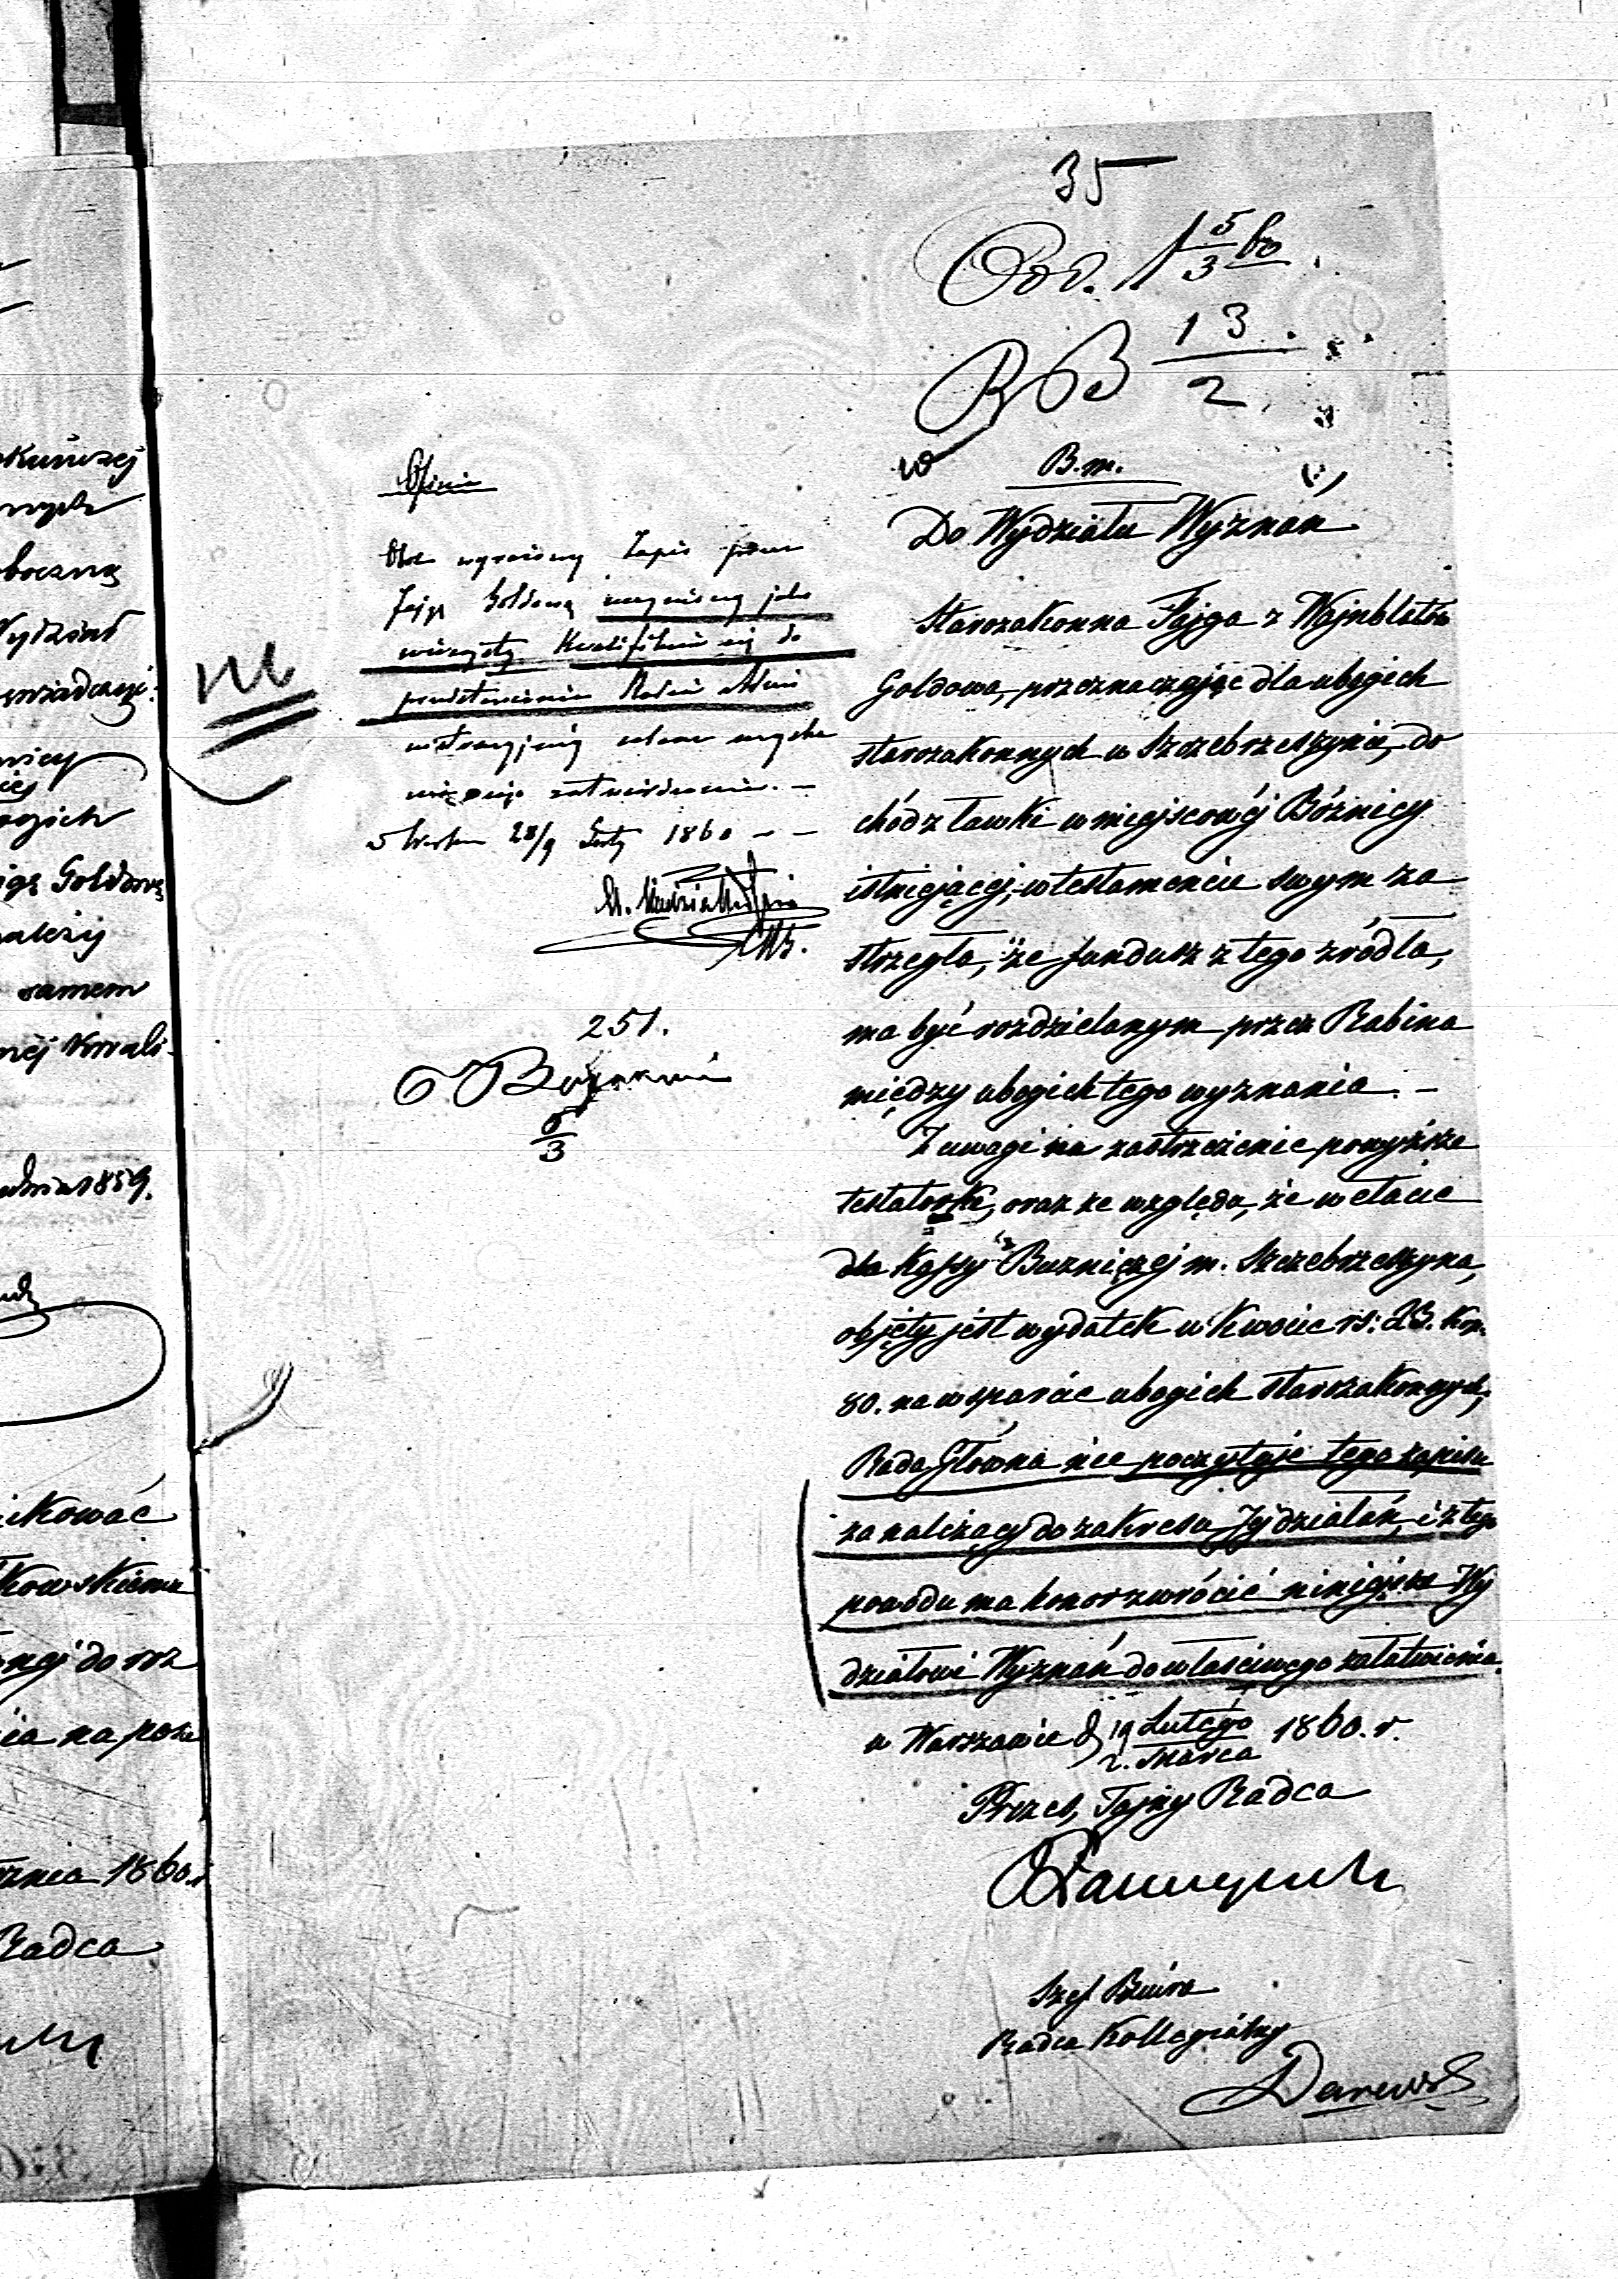 35
Od. 5/3 60
RB 13/2
B.m.
Do Wydziału Wyznań
Starozakonna Fajga z Wajnblatów
Goldowa, przeznaczając dla ubogich
starozakonnych w Szczebrzeszynie, do
chód z ławki w miejscowéj Bóżnicy
istniejącej, w testamencie swym za
strzegła, że fundusz z tego źródła,
ma być rozdzielanym przez Rabina
między ubogich tego wyznania. —
Z uwagi na zastrzeżenie powyższe
testatorki, oraz ze względu, że w etacie
dla Kassy Bużniczéj m. Szczebrzeszyna,
objęty jest wydatek w kwocie rs: 23. kop.
80. na wsparcie ubogich starozakonnych,
Rada Główna nie poczytuje tego zapisu
za należący do zakresu Jéj działań, i z tego
powodu ma honor zwrócić niniejsze Wy
działowi Wyznań do właściwego załatwienia.
w Warszawie d. 19 Lutego / 2. Marca 1860. r.
Prezes, Tajny Radca
Szef Biura
Radca Kollegialny
Opinia
wyrażony Zapis przez
Fajgę Goldową uczyniony jako
wieczysty kwalifikuje się do
przedstawienia Radzie Admi
nistracyjnéj celem uzyska
nia jego zatwierdzenia. —
28/9 Luty 1860 — —
251.
5/3
okuiszej
Wydział
Goldową
należy
samem
1859.
ikować
kowskiemu
do roz
nia na posie
1860. r
Radca